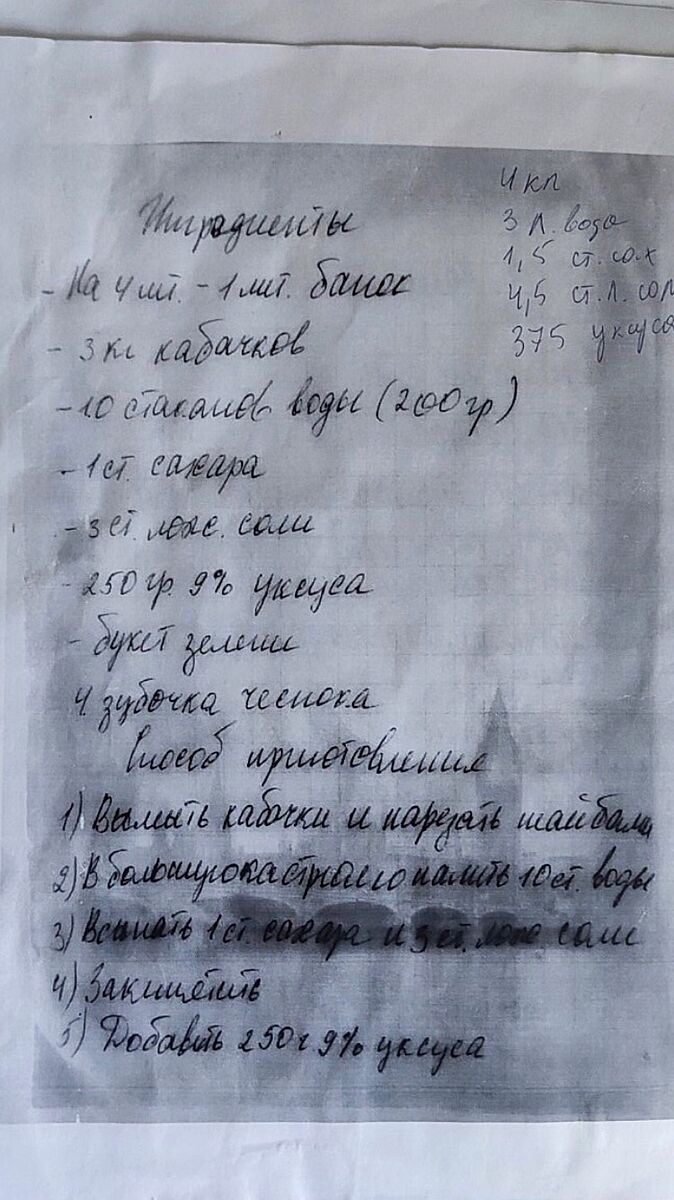 Ингредиенты
- На 4 лит. - 1 лит. банок
- 3 кг кабачков
- 10 стаканов воды (200 гр)
- 1 ст. сахара
- 3 ст. лож. соли
- 250 гр. 9% уксуса
- букет зелени
4 зубочка чеснока
4 кг
3 л. воды
1,5 ст. сах
4,5 ст. л. сол
375 уксуса
Способ приготовления
1) Вымыть кабачки и нарезать шайбами
2) В большую кастрюлю налить 10 ст. воды
3) Всыпать 1 ст. сахара и 3 ст. лож соли
4) Закипятить
5) Добавить 250 г 9% уксуса